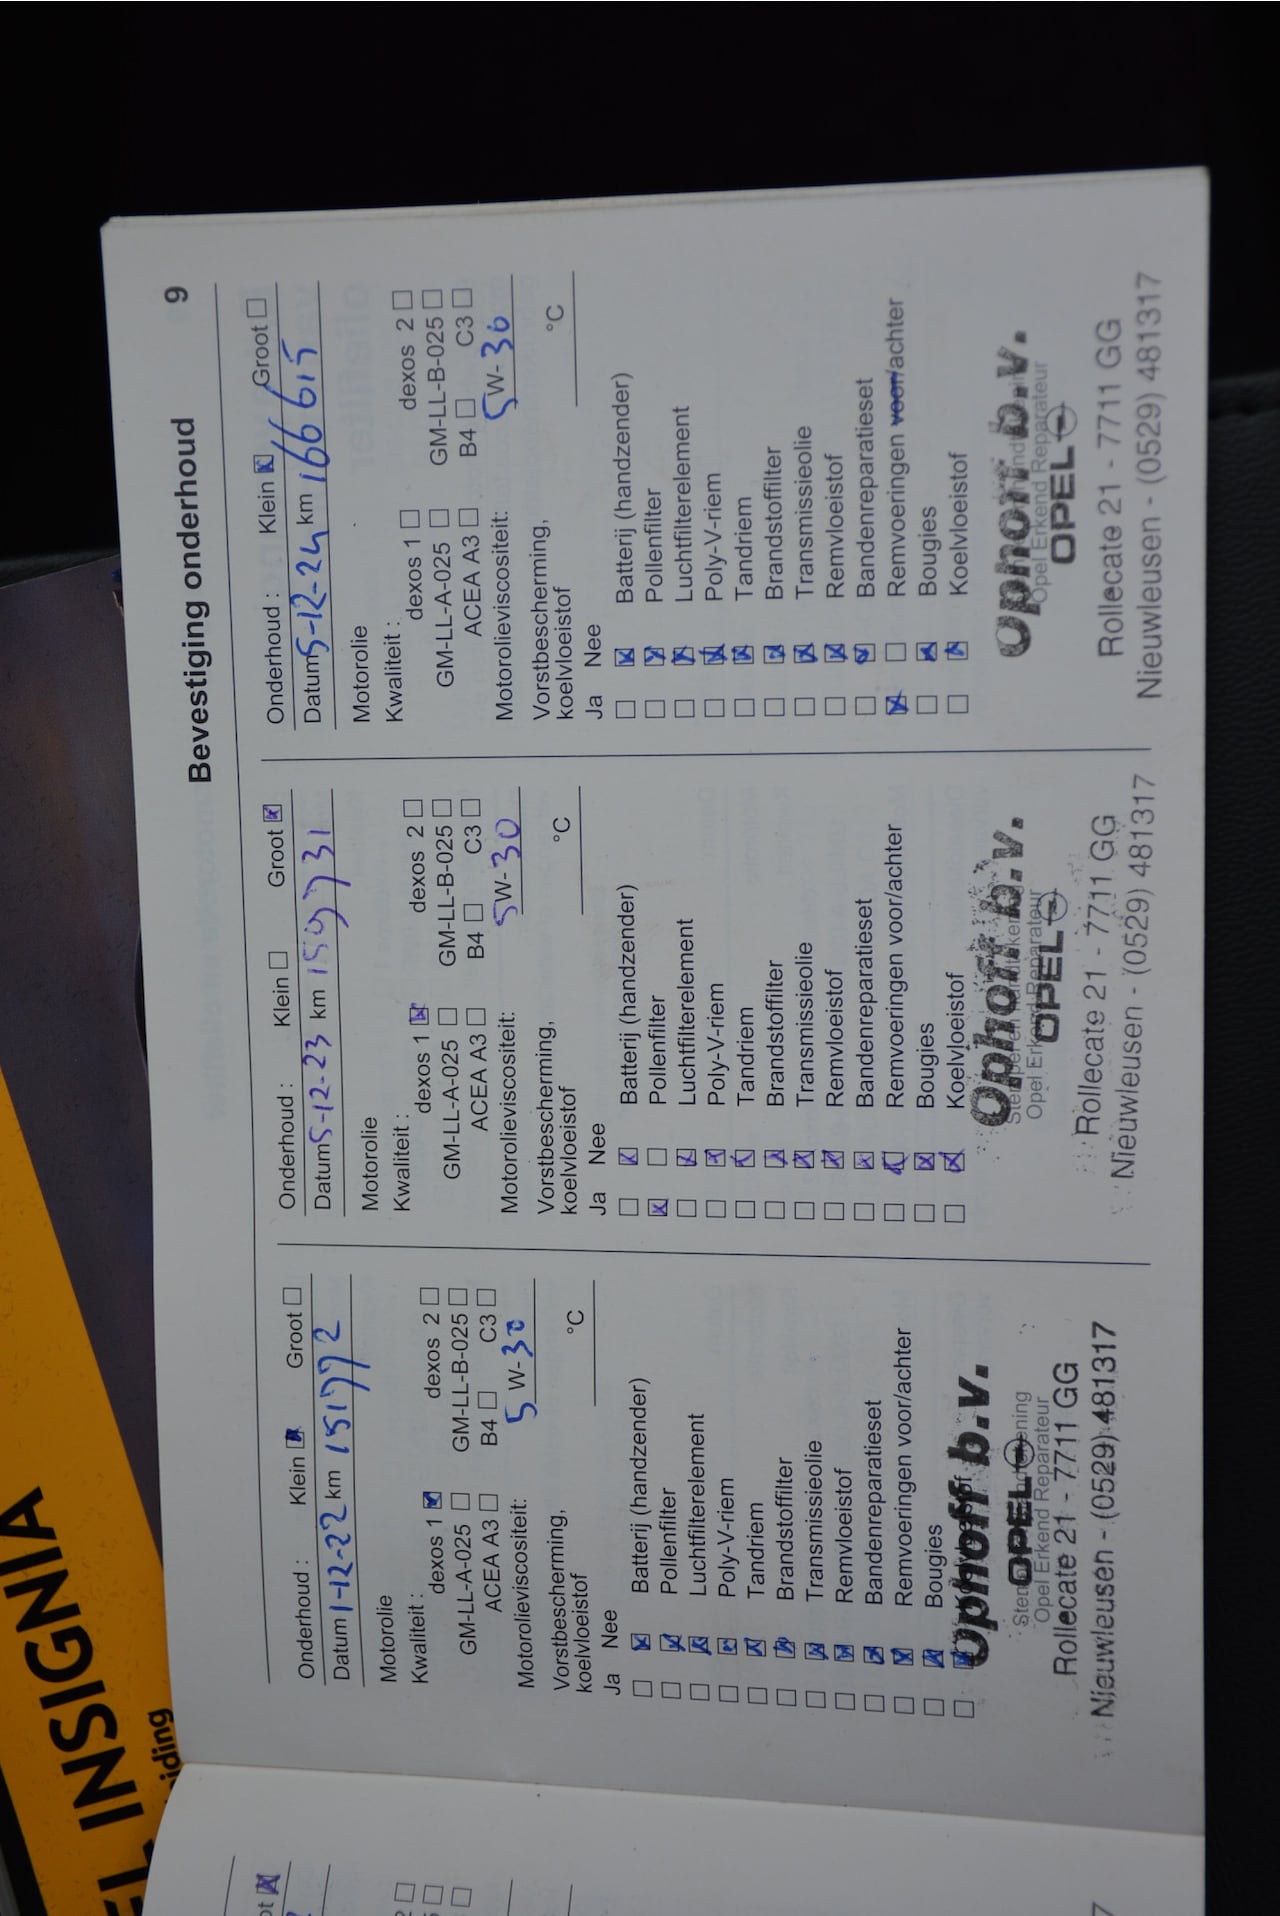 Bevestiging onderhoud 9
Onderhoud : Klein ☒ Groot ☐
Datum 1-12-22 km 151772
Motorolie
Kwaliteit :
dexos 1 ☒ dexos 2 ☐
GM-LL-A-025 ☐ GM-LL-B-025 ☐
ACEA A3 ☐ B4 ☐ C3 ☐
Motorolieviscositeit: 5 W-30
Vorstbescherming,
koelvloeistof °C
Ja Nee
☐ ☒ Batterij (handzender)
☐ ☒ Pollenfilter
☐ ☒ Luchtfilterelement
☐ ☒ Poly-V-riem
☐ ☒ Tandriem
☐ ☒ Brandstoffilter
☐ ☒ Transmissieolie
☐ ☒ Remvloeistof
☐ ☒ Bandenreparatieset
☐ ☒ Remvoeringen voor/achter
☐ ☒ Bougies
☐ ☒
Ophoff b.v.
Opel Erkend Reparateur
OPEL
Rollecate 21 - 7711 GG
Nieuwleusen - (0529) 481317
Onderhoud : Klein ☐ Groot ☒
Datum 5-12-23 km 159731
Motorolie
Kwaliteit :
dexos 1 ☒ dexos 2 ☐
GM-LL-A-025 ☐ GM-LL-B-025 ☐
ACEA A3 ☐ B4 ☐ C3 ☐
Motorolieviscositeit: 5W-30
Vorstbescherming,
koelvloeistof °C
Ja Nee
☐ ☒ Batterij (handzender)
☒ ☐ Pollenfilter
☐ ☒ Luchtfilterelement
☐ ☒ Poly-V-riem
☐ ☒ Tandriem
☐ ☒ Brandstoffilter
☐ ☒ Transmissieolie
☐ ☒ Remvloeistof
☐ ☒ Bandenreparatieset
☐ ☒ Remvoeringen voor/achter
☐ ☒ Bougies
☐ ☒ Koelvloeistof
Ophoff b.v.
Opel Erkend Reparateur
OPEL
Rollecate 21 - 7711 GG
Nieuwleusen - (0529) 481317
Onderhoud : Klein ☒ Groot ☐
Datum 5-12-24 km 166615
Motorolie
Kwaliteit :
dexos 1 ☐ dexos 2 ☐
GM-LL-A-025 ☐ GM-LL-B-025 ☐
ACEA A3 ☐ B4 ☐ C3 ☐
Motorolieviscositeit: 5W-30
Vorstbescherming,
koelvloeistof °C
Ja Nee
☐ ☒ Batterij (handzender)
☐ ☒ Pollenfilter
☐ ☒ Luchtfilterelement
☐ ☒ Poly-V-riem
☐ ☒ Tandriem
☐ ☒ Brandstoffilter
☐ ☒ Transmissieolie
☐ ☒ Remvloeistof
☐ ☒ Bandenreparatieset
☒ ☐ Remvoeringen voor/achter
☐ ☒ Bougies
☐ ☒ Koelvloeistof
Ophoff b.v.
Opel Erkend Reparateur
OPEL
Rollecate 21 - 7711 GG
Nieuwleusen - (0529) 481317
INSIGNIA